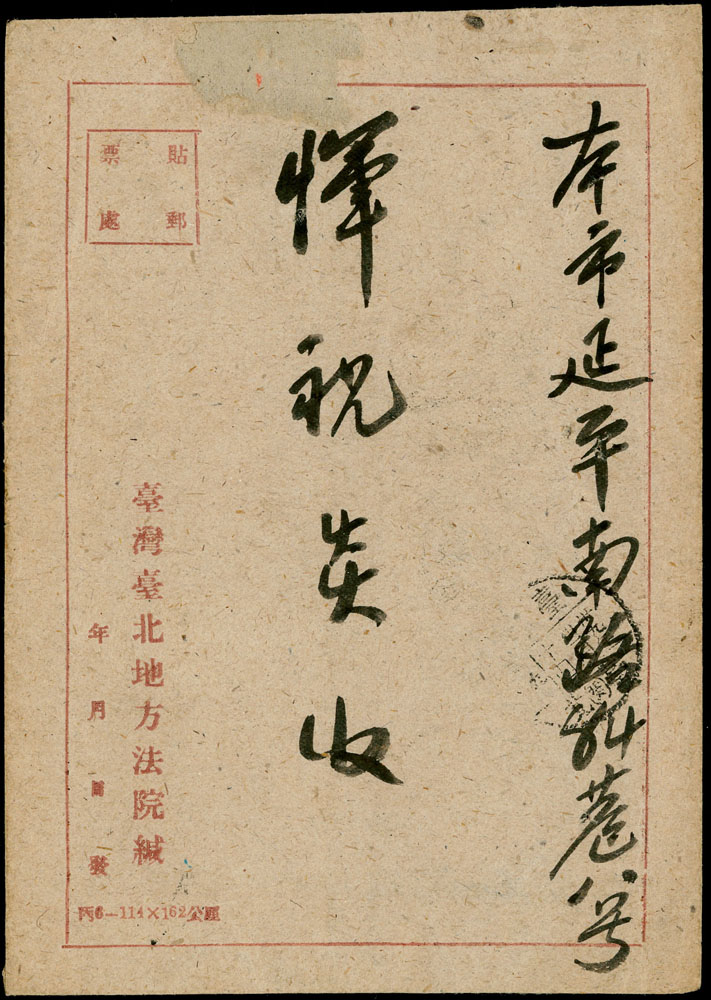 本市延平南路84巷八号
惲祝炎收
貼郵票處
臺灣臺北地方法院緘
年月日發
丙6—114×162公厘